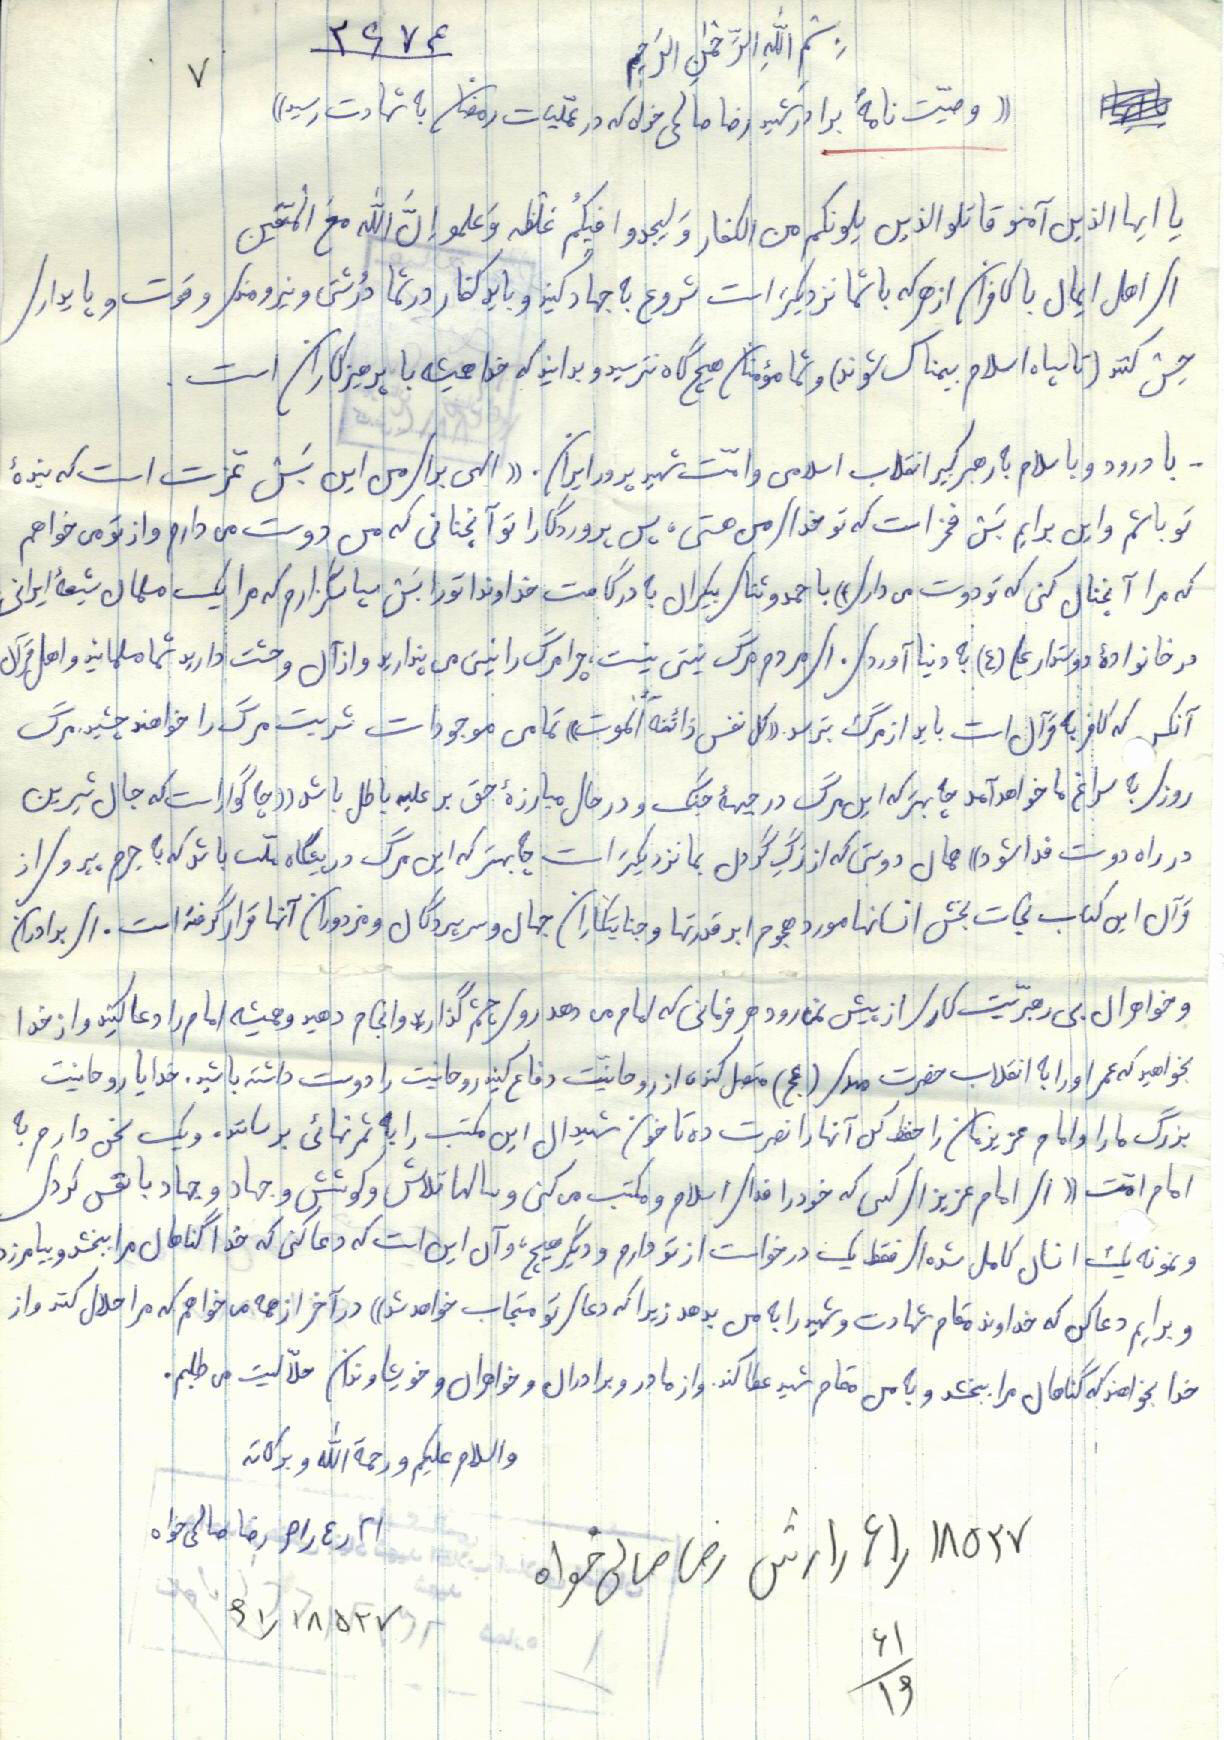 بِسْمِ اللهِ الرَّحْمٰنِ الرَّحیم
۳۶۷۴
۷
((وصیّت نامهٔ برادر شهید رضا صالحی خواه که در عملیات رمضان به شهادت رسید))
یا ایها الذین آمنو قاتلو الذین یلونکم من الکفار وَلیجدوا فیکُم غلْظه وَعلمو اِنَّ الله معَ الْمتقین
ای اهل ایمان با کافران از هر که با شما نزدیکتر است شروع به جهاد کنید و باید کفار در شما دُرشتی و نیرومندی و قوت و پایداری
حِسْ کنند (تا سپاه اسلام بیمناک شوند) و شما مؤمنان هیچ گاه نترسید و بدانید که خدا همیشه با پرهیزکاران است.
- با درود و با سلام به رهبر کبیر انقلاب اسلامی و امّت شهید پرور ایران. ((الهی برای من این بَسْ عزت است که بندهٔ
تو باشم و این برایم بَسْ فخر است که تو خدای من هستی، پس پروردگارا تو آنچنانی که من دوست می دارم و از تو می خواهم
که مرا آنچنان کنی که تو دوست می داری)) با حمد و ثنای بیکران به درگاهت خداوندا تو را بَسْ سپاسگزارم که مرا یک مسلمان شیعهٔ ایرانی
در خانوادهٔ دوستدار علی (ع) به دنیا آوردی. ای مردم مرگ نیستی نیست، چرا مرگ را نیستی می پندارید و از آن وحشت دارید شما مسلمانید و اهل قرآن
آنکس که کافر به قرآن است باید از مرگ بترسد. ((کل نفس ذائقهٔ الْموت)) تمامی موجودات شربت مرگ را خواهند چشید. مرگ
روزی به سراغ ما خواهد آمد چه بهتر که این مرگ در جبههٔ جنگ و در حال مبارزهٔ حق بر علیه باطل باشد ((چه گوارا است که جان شیرین
در راه دوست فدا شود)) همان دوستی که از رگِ گردن بما نزدیکتر است چه بهتر که این مرگ در پیشگاه ملّت باشد که به جرم پیروی از
قرآن این کتاب نجات بخش انسانها مورد هجوم ابرقدرتها و جنایتکاران جهان و سرسپردگان و مزدوران آنها قرار گرفته است. ای برادران
و خواهران بی رهبریّت کاری از پیش نمی رود هر فرمانی که امام می دهد روی چشم گذارید و انجام دهید و همیشه امام را دعا کنید و از خدا
بخواهید که عمر او را به انقلاب حضرت مهدی (عج) متصل کند، از روحانیّت دفاع کنید روحانیت را دوست داشته باشید. خدایا روحانیت
بزرگ ما را و امام عزیزمان را حفظ کن آنها را نصرت ده تا خون شهیدان این مکتب را به ثمر نهائی برسانند. و یک سخن دارم به
امام امّت ((ای امام عزیز ای کسی که خود را فدای اسلام و مکتب می کنی و سالها تلاش و کوشش و جهاد و جهاد با نفس کردی
و نمونه یک انسان کامل شده ای فقط یک درخواست از تو دارم و دیگر هیچ، و آن این است که دعا کنی که خدا گناهان مرا ببخشد و بیامرزد
و برایم دعا کن که خداوند مقام شهادت و شهید را به من بدهد زیرا که دعای تو مستجاب خواهد شد)) در آخر از همه می خواهم که مرا حلال کنند و از
خدا بخواهند که گناهان مرا ببخشد و به من مقام شهید عطا کند. و از مادر و برادران و خواهران و خویشاوندان حلّالیت می طلبم.
والسلام علیکم و رحمة الله و برکاته
۲۱ر۴ر۶۱ رضا صالحی خواه
۱۸۵۲۷ را۶ رارش رضا صالحی خواه
۱۸۵۲۷ر۶۱
۶۱
۱۶